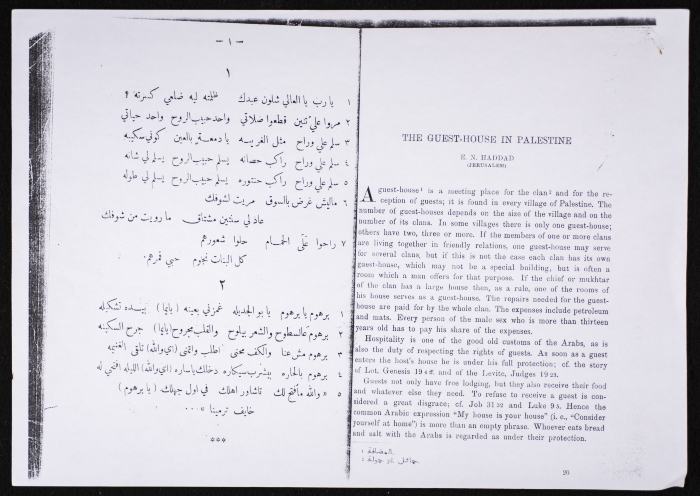 – ١ –
١
١ يا رب يا العالي شلون عبدك خلقته ليه ضلعي كسرته ؟
٢ مروا علي تنين قطعوا صلاتي واحد حبيب الروح واحد حياتي
٣ سلم علي وراح مثل الغريبه يا دمع بالعين كوني سكيبه
٤ سلم علي وراح راكب حصانه يسلم حبيب الروح يسلم لي شانه
٥ سلم علي وراح راكب حنتوره يسلم حبيب الروح يسلم لي طوله
٦ ماليش غرض بالسوق مريت لشوفك
عاد لي سنتين مشتاق ما رويت من شوفك
٧ راحوا على الحمام حلوا شعورهم
كل البنات نجوم حبي قمرهم
٢
١ برهوم يا برهوم يا بو الجديله غمزني بعينه ( يابا ) بيده تشكيله
٢ برهوم عالسطوح والشعر بيلوح والقلب مجروح ( يابا ) جرح السكينه
٣ برهوم مش عنا والكف محنى اطلب واتمنى ( اي والله ) تلقى الغنيه
٤ برهوم بالحاره بيشرب سيكاره دخلك يا ساره ( اي والله ) الليله افتحي له
٥ « والله مأفتح لك تاشاور اهلك في اول جهلك ( يا برهوم )
خايف ترمينا » ...
***
THE GUEST-HOUSE IN PALESTINE
E. N. HADDAD
(JERUSALEM)
A guest-house¹ is a meeting place for the clan² and for the re-
ception of guests; it is found in every village of Palestine. The
number of guest-houses depends on the size of the village and on the
number of its clans. In some villages there is only one guest-house;
others have two, three or more. If the members of one or more clans
are living together in friendly relations, one guest-house may serve
for several clans, but if this is not the case each clan has its own
guest-house, which may not be a special building, but is often a
room which a man offers for that purpose. If the chief or mukhtar
of the clan has a large house then, as a rule, one of the rooms of
his house serves as a guest-house. The repairs needed for the guest-
house are paid for by the whole clan. The expenses include petroleum
and mats. Every person of the male sex who is more than thirteen
years old has to pay his share of the expenses.
Hospitality is one of the good old customs of the Arabs, as is
also the duty of respecting the rights of guests. As soon as a guest
enters the host's house he is under his full protection; cf. the story
of Lot, Genesis 19 4 ff. and of the Levite, Judges 19 23.
Guests not only have free lodging, but they also receive their food
and whatever else they need. To refuse to receive a guest is con-
sidered a great disgrace; cf. Job 31 32 and Luke 9 5. Hence the
common Arabic expression "My house is your house" (i. e., "Consider
yourself at home") is more than an empty phrase. Whoever eats bread
and salt with the Arabs is regarded as under their protection.
1 المضافة
2 حمائل حمولة
20